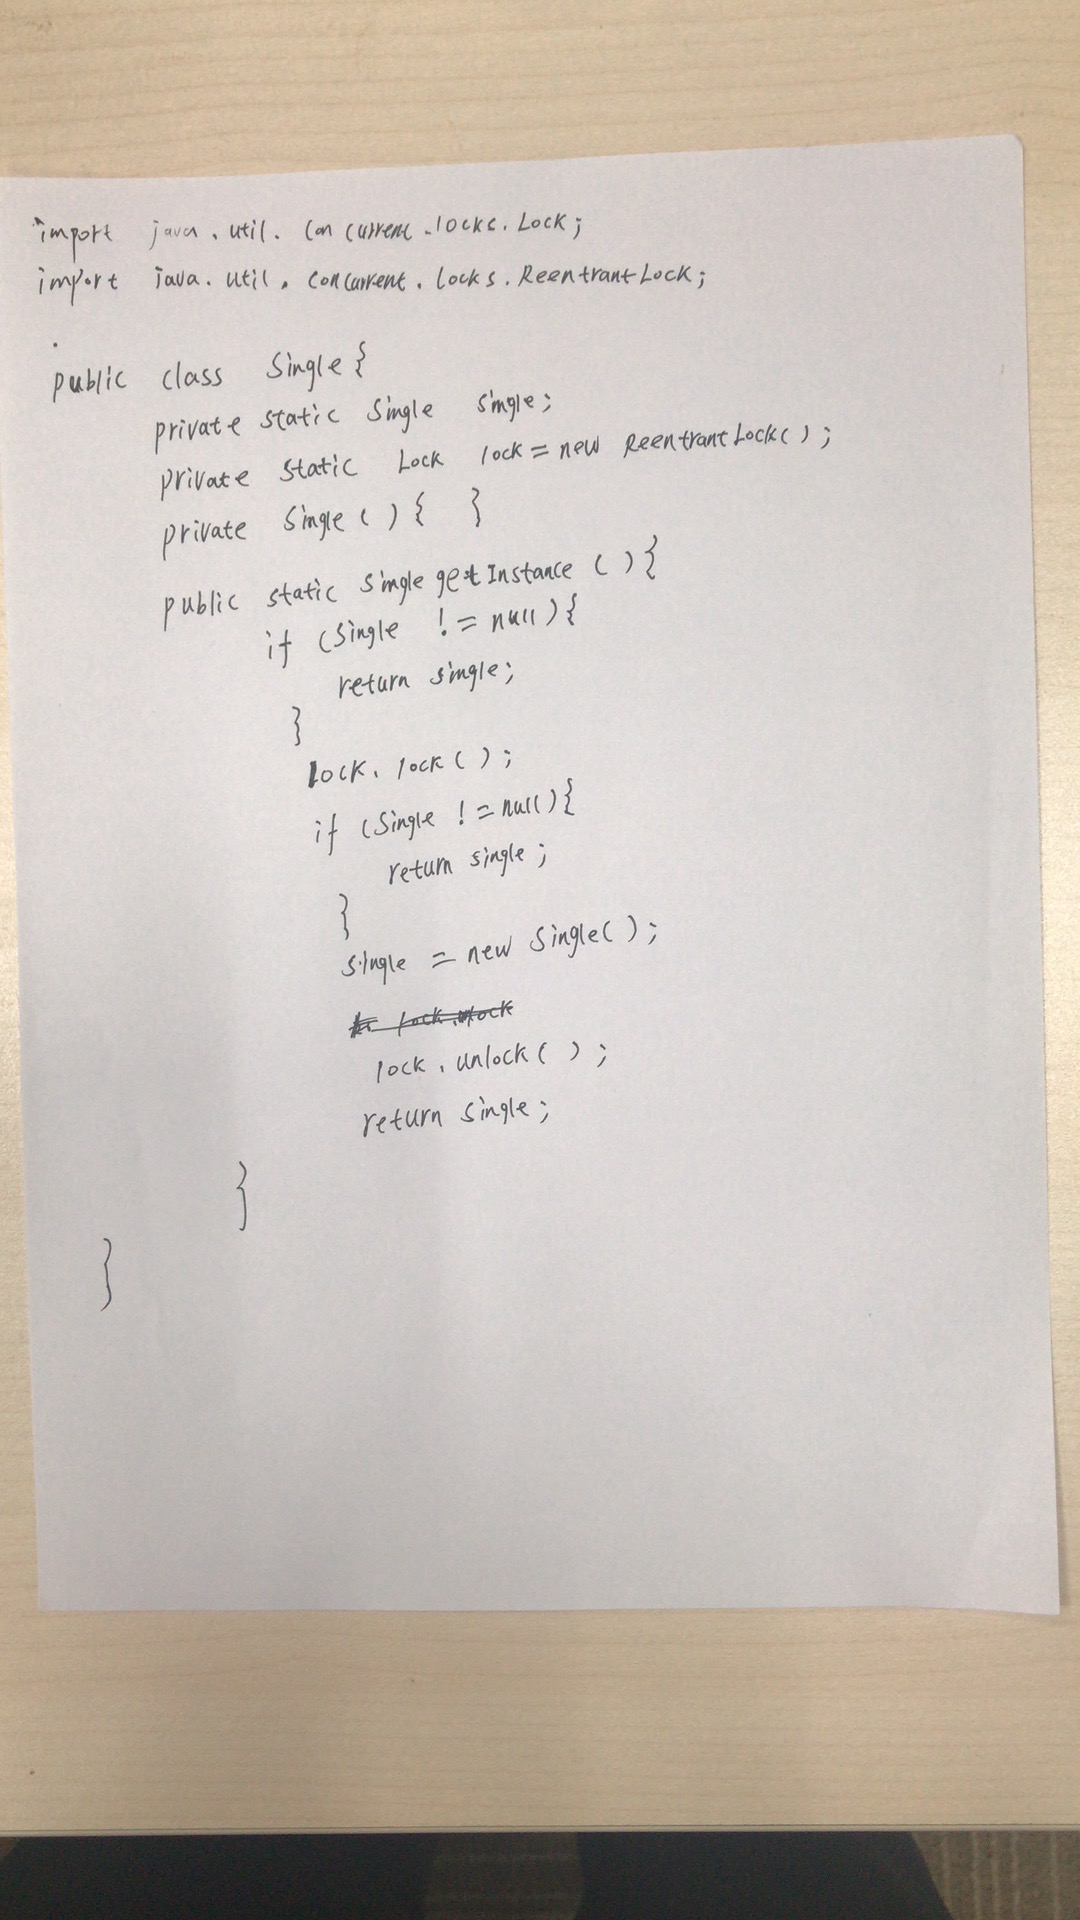 import java.util.concurrent.locks.Lock;
import java.util.concurrent.locks.ReentrantLock;
public class Single{
private static Single single;
private static Lock lock = new ReentrantLock();
private Single(){ }
public static Single getInstance(){
if (single != null){
return single;
}
lock.lock();
if (single != null){
return single;
}
single = new Single();
lock.unlock();
return single;
}
}